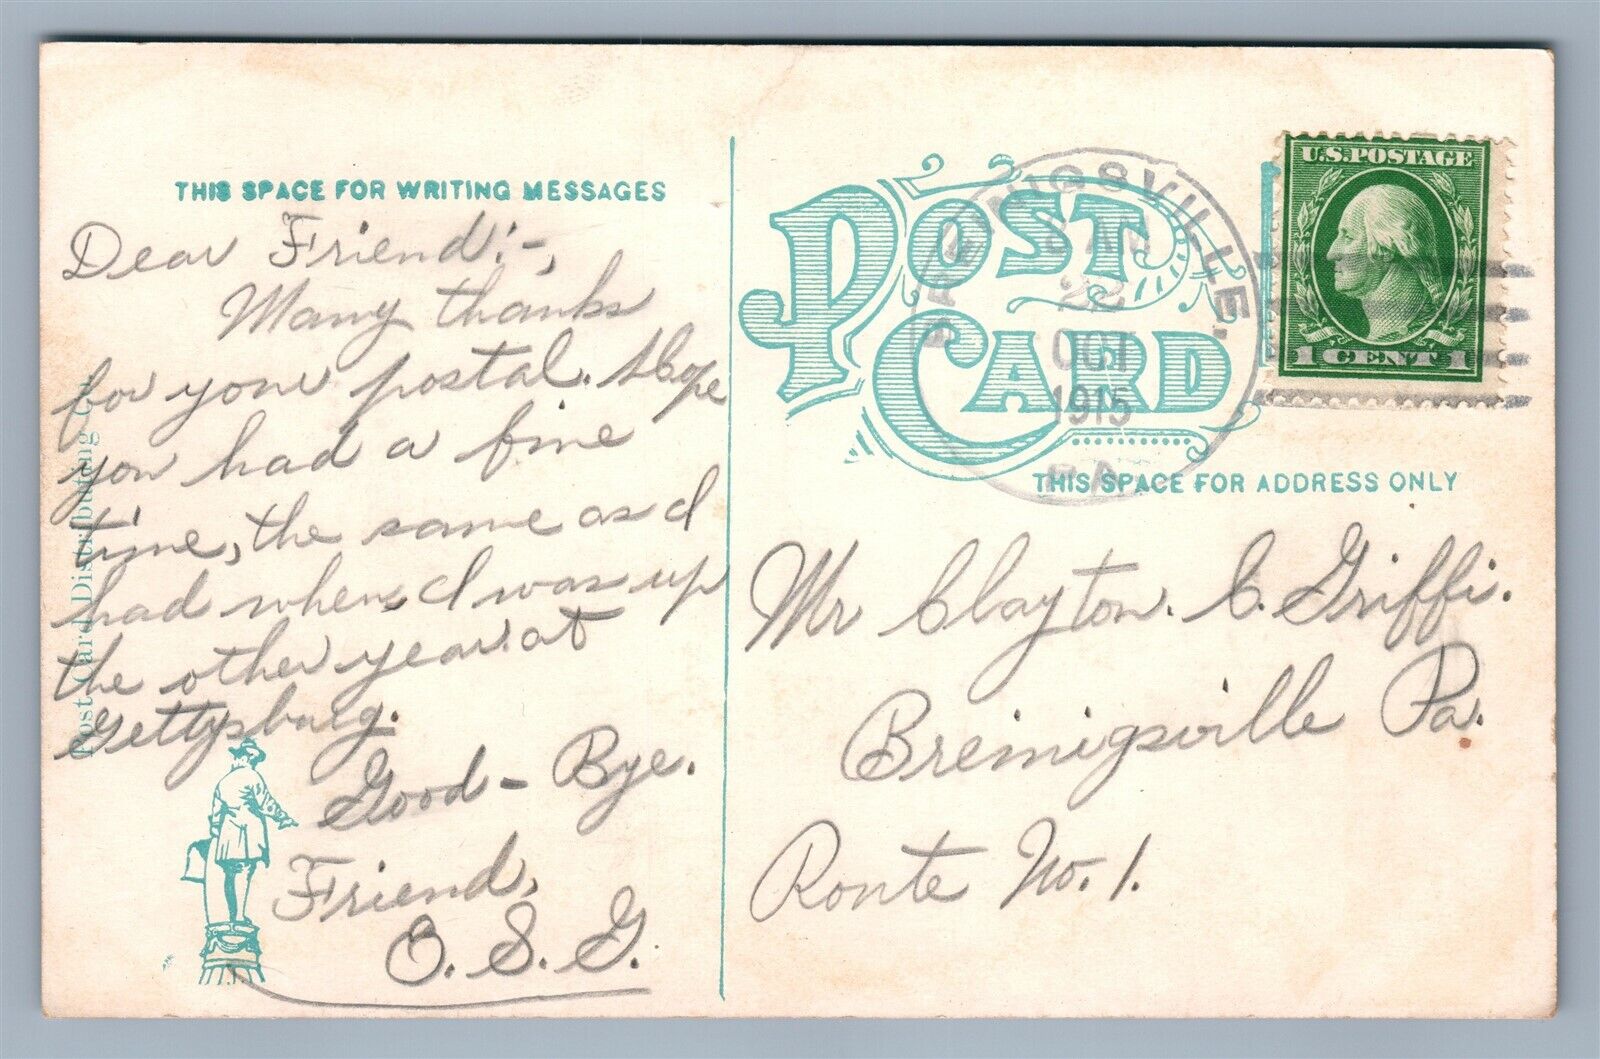 THIS SPACE FOR WRITING MESSAGES
Dear Friend:-,
Many thanks
for your postal. Hope
you had a fine
time, the same as I
had when I was up
the other year at
Gettysburg.
Good-Bye.
Friend,
O. S. G.
Post Card Distributing Co.
POST CARD
THIS SPACE FOR ADDRESS ONLY
BREINIGSVILLE.
22
OCT
1915
PA.
U.S. POSTAGE
1 CENT 1
Mr Clayton. C. Griffi.
Breinigsville Pa.
Route No. 1.